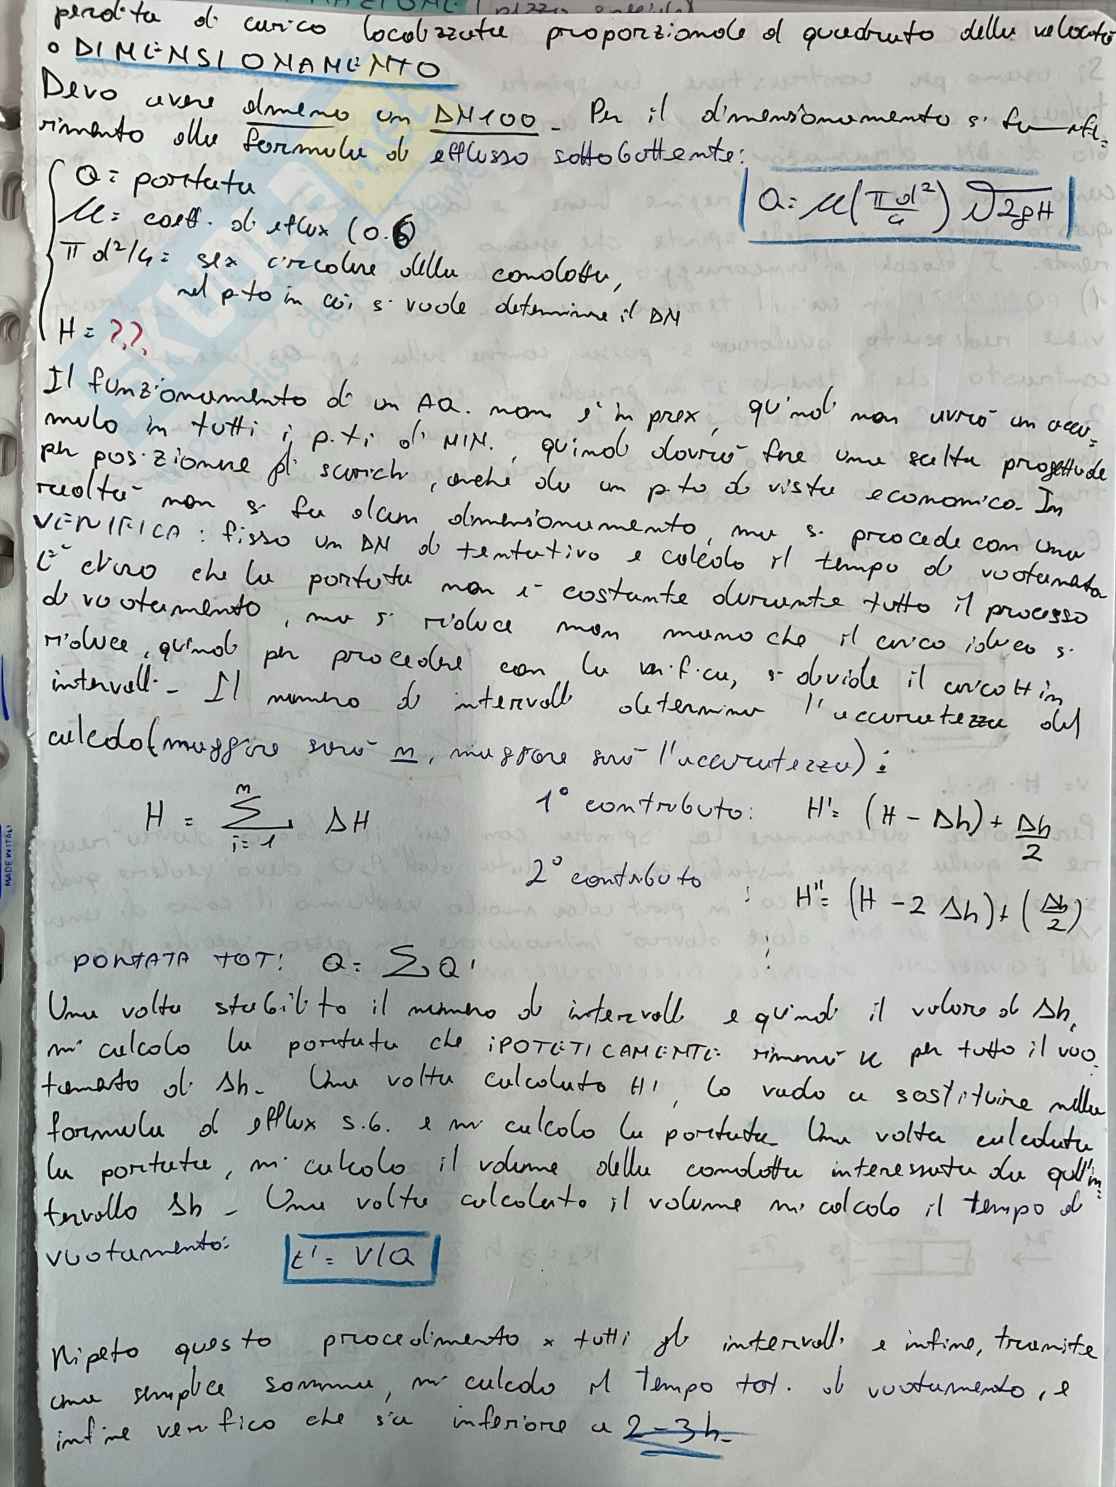 perdita di carico localizzata proporzionale al quadrato della velocità
o DIMENSIONAMENTO
Devo avere almeno un DN100. Per il dimensionamento si fa rife=
rimento alla formula di efflusso sottobattente:
Q = portata
Q = μ(πd²/4) √2gH
μ = coeff. di efflux (0.6)
πd²/4 = sex circolare della condotta,
nel p.to in cui si vuole determinare il DN
H = ??
Il funzionamento di un AQ. non è in prex, quindi non avrò un accu=
mulo in tutti i p.ti di MIN., quindi dovrò fare una scelta progettuale
per posizionare gli scarichi, anche da un p.to di vista economico. In
realtà non si fa alcun dimensionamento, ma si procede con una
VERIFICA: fisso un DN di tentativo e calcolo il tempo di vuotamento
È chiaro che la portata non è costante durante tutto il processo
di vuotamento, ma si riduce man mano che il carico idrico si
riduce, quindi per procedere con la verifica, si divide il carico H in
intervalli. Il numero di intervalli determina l'accuratezza del
calcolo (maggiore sarà n, maggiore sarà l'accuratezza):
H = n Σ i=1 ΔH
1° contributo: H' = (H - Δh) + Δh/2
2° contributo : H'' = (H - 2 Δh) + (Δh/2)
PORTATA TOT: Q = Σ Q'
Una volta stabilito il numero di intervalli e quindi il valore di Δh,
mi calcolo la portata che IPOTETICAMENTE rimarrà K per tutto il vuo
tamento di Δh. Una volta calcolato H', lo vado a sostituire nella
formula di efflux s.b. e mi calcolo la portata. Una volta calcolata
la portata, mi calcolo il volume della condotta interessata da quell'in=
tervallo Δh. Una volta calcolato il volume mi calcolo il tempo di
vuotamento: t' = V/Q
Ripeto questo procedimento x tutti gli intervalli e infine, tramite
una semplice somma, mi calcolo il tempo tot. di vuotamento, e
infine verifico che sia inferiore a 2-3h.
MADE IN ITALY